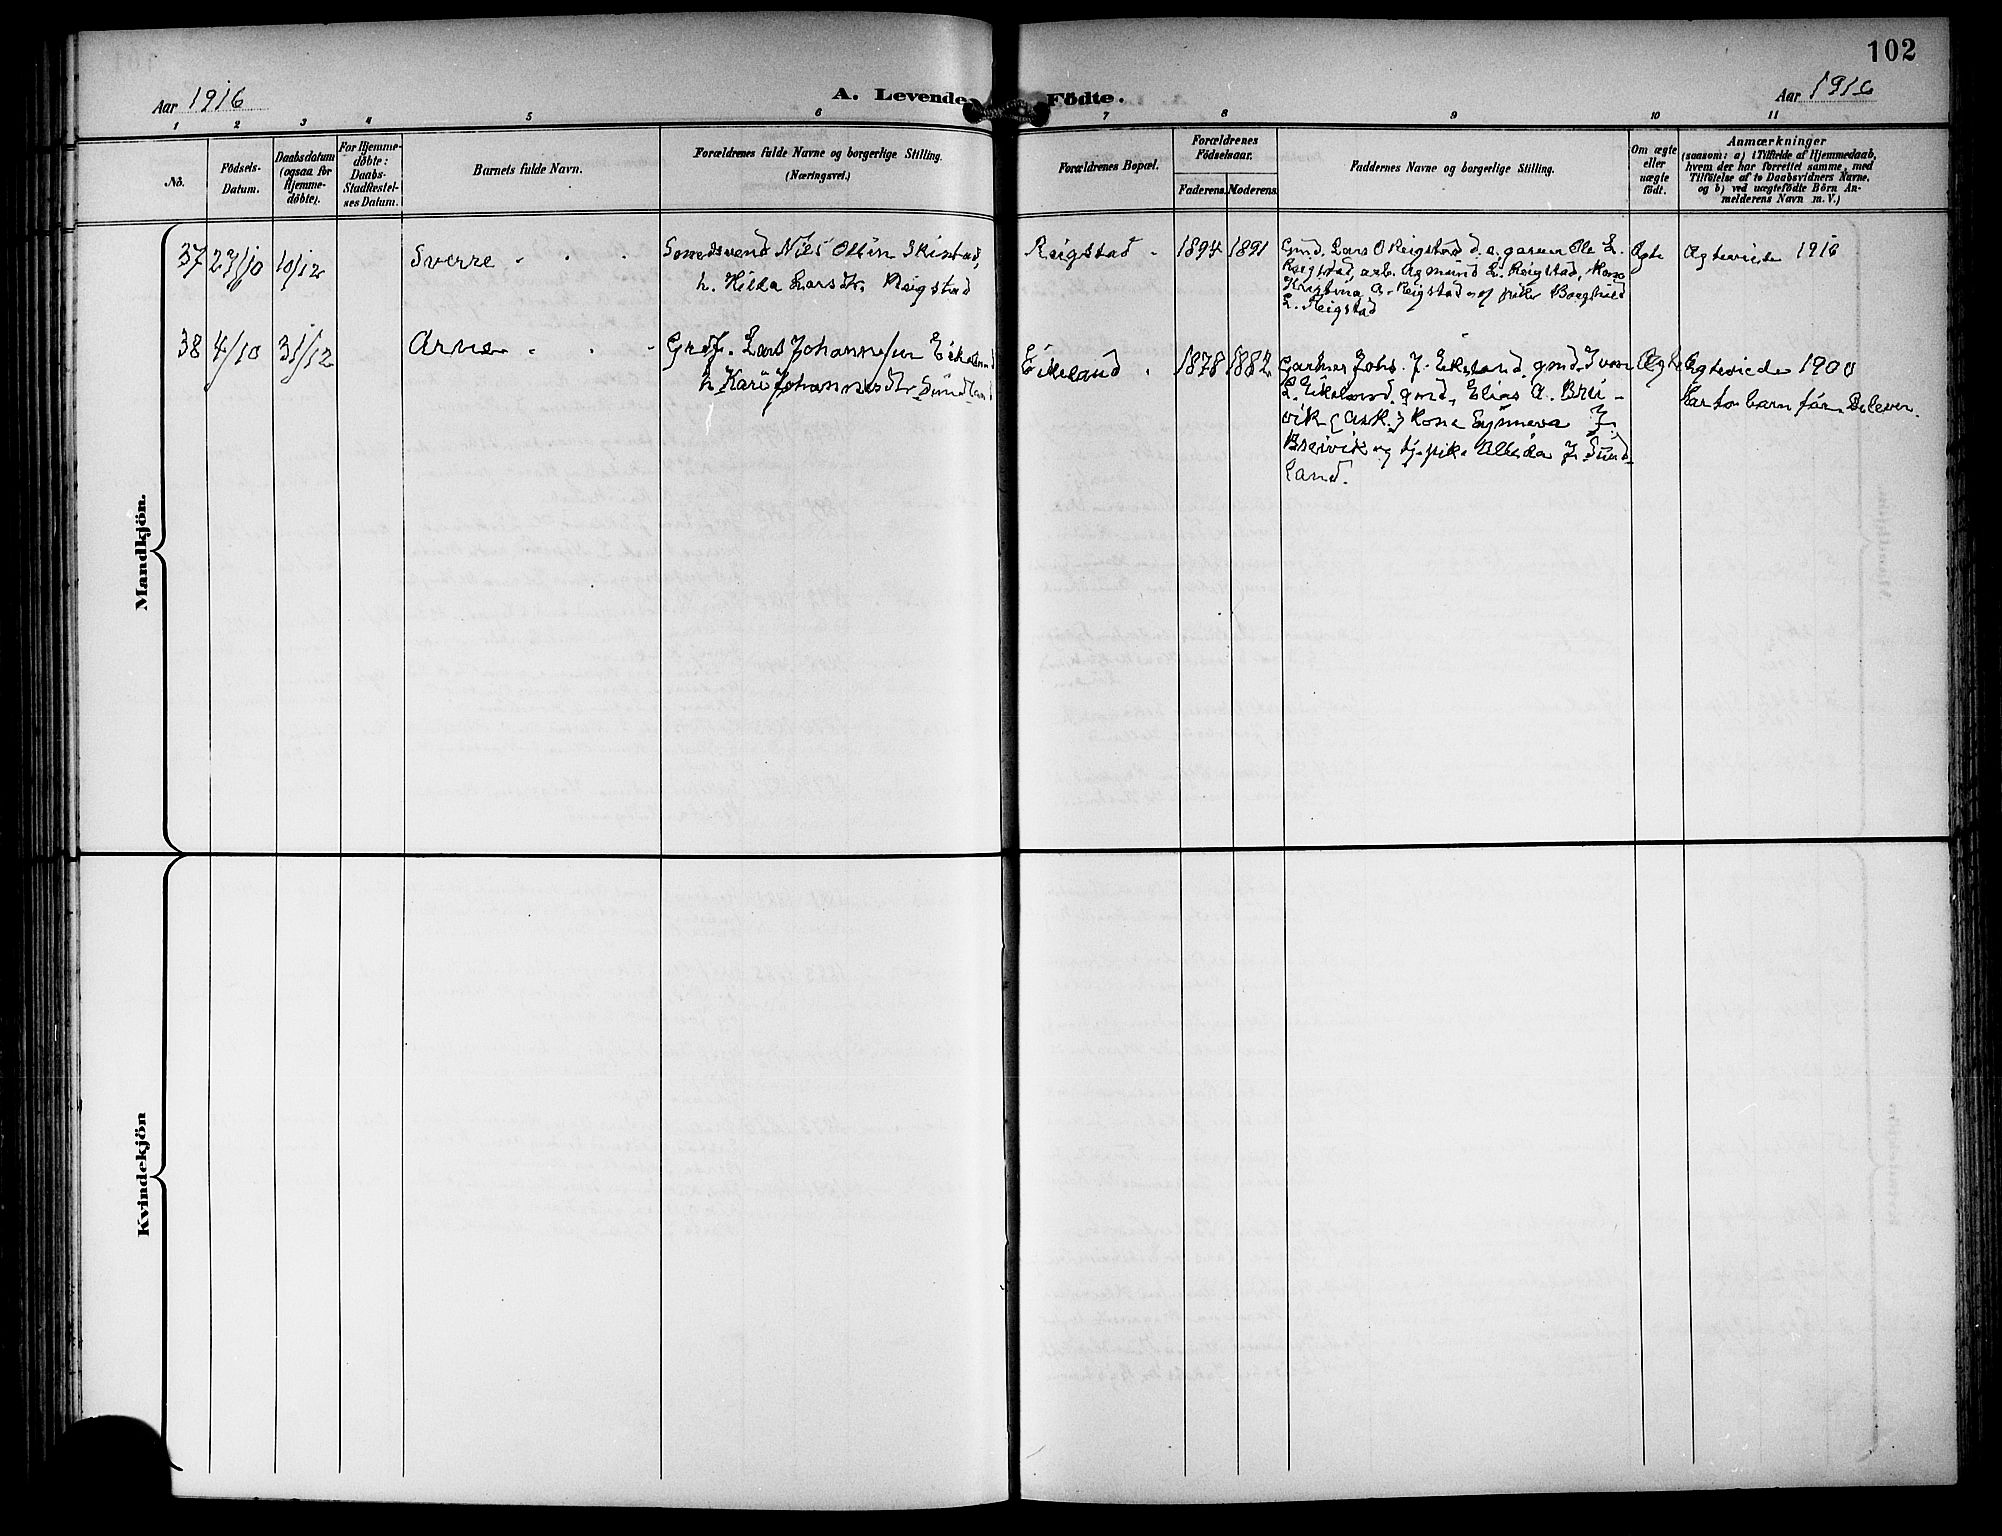 102
Aar 1916
A. Levende Födte.
Aar 1916
1 2 3 4 5 6 7 8 9 10 11
No.
Födsels-
Datum.
Daabsdatum
(ogsaa for
Hjemme-
döbte).
For Hjemme-
döbte:
Daabs-
Stadfæstel-
ses Datum.
Barnets fulde Navn.
Forældrenes fulde Navne og borgerlige Stilling.
(Næringsvei.)
Forældrenes Bopæl.
Forældrenes
Födselsaar.
Faderens. Moderens.
Faddernes Navne og borgerlige Stilling.
Om ægte
eller
uægte
födt.
Anmærkninger
(saasom: a) i Tilfælde af Hjemmedaab,
hvem der har forrettet samme, med
Tilföielse af to Daabsvidners Navne,
og b) ved uægtefödte Börn An-
melderens Navn m. V.)
Mandkjön.
37 27/10 10/12 Sverre
Smedsvend Nils Olsen Skistad,
h. Hilda Larsdtr. Reigstad
Reigstad 1894 1891
Gmd. Lars O Reigstad d. e. gasun Ole L.
Reigstad, arb. Agmund L. Reigstad, Kone
Kristina A. Reigstad og pike Borghild
L. Reigstad
Ægte Ægteviede 1916
38 4/10 31/12 Arne
Grdf. Lars Johannesen Eikeland
h. Kari Johannesdtr. Sundland
Eikeland 1878 1882
Garhus Johs. J. Eikeland, gmd. Ivar
L. Eikeland, gmd. Elias A. Brei-
vik (Ask.) Kone Synneva J.
Breivik og tj. pike Alida J. Sund-
land.
Ægte Ægteviede 1900
Har to barn før. De lever.
Kvindekjön